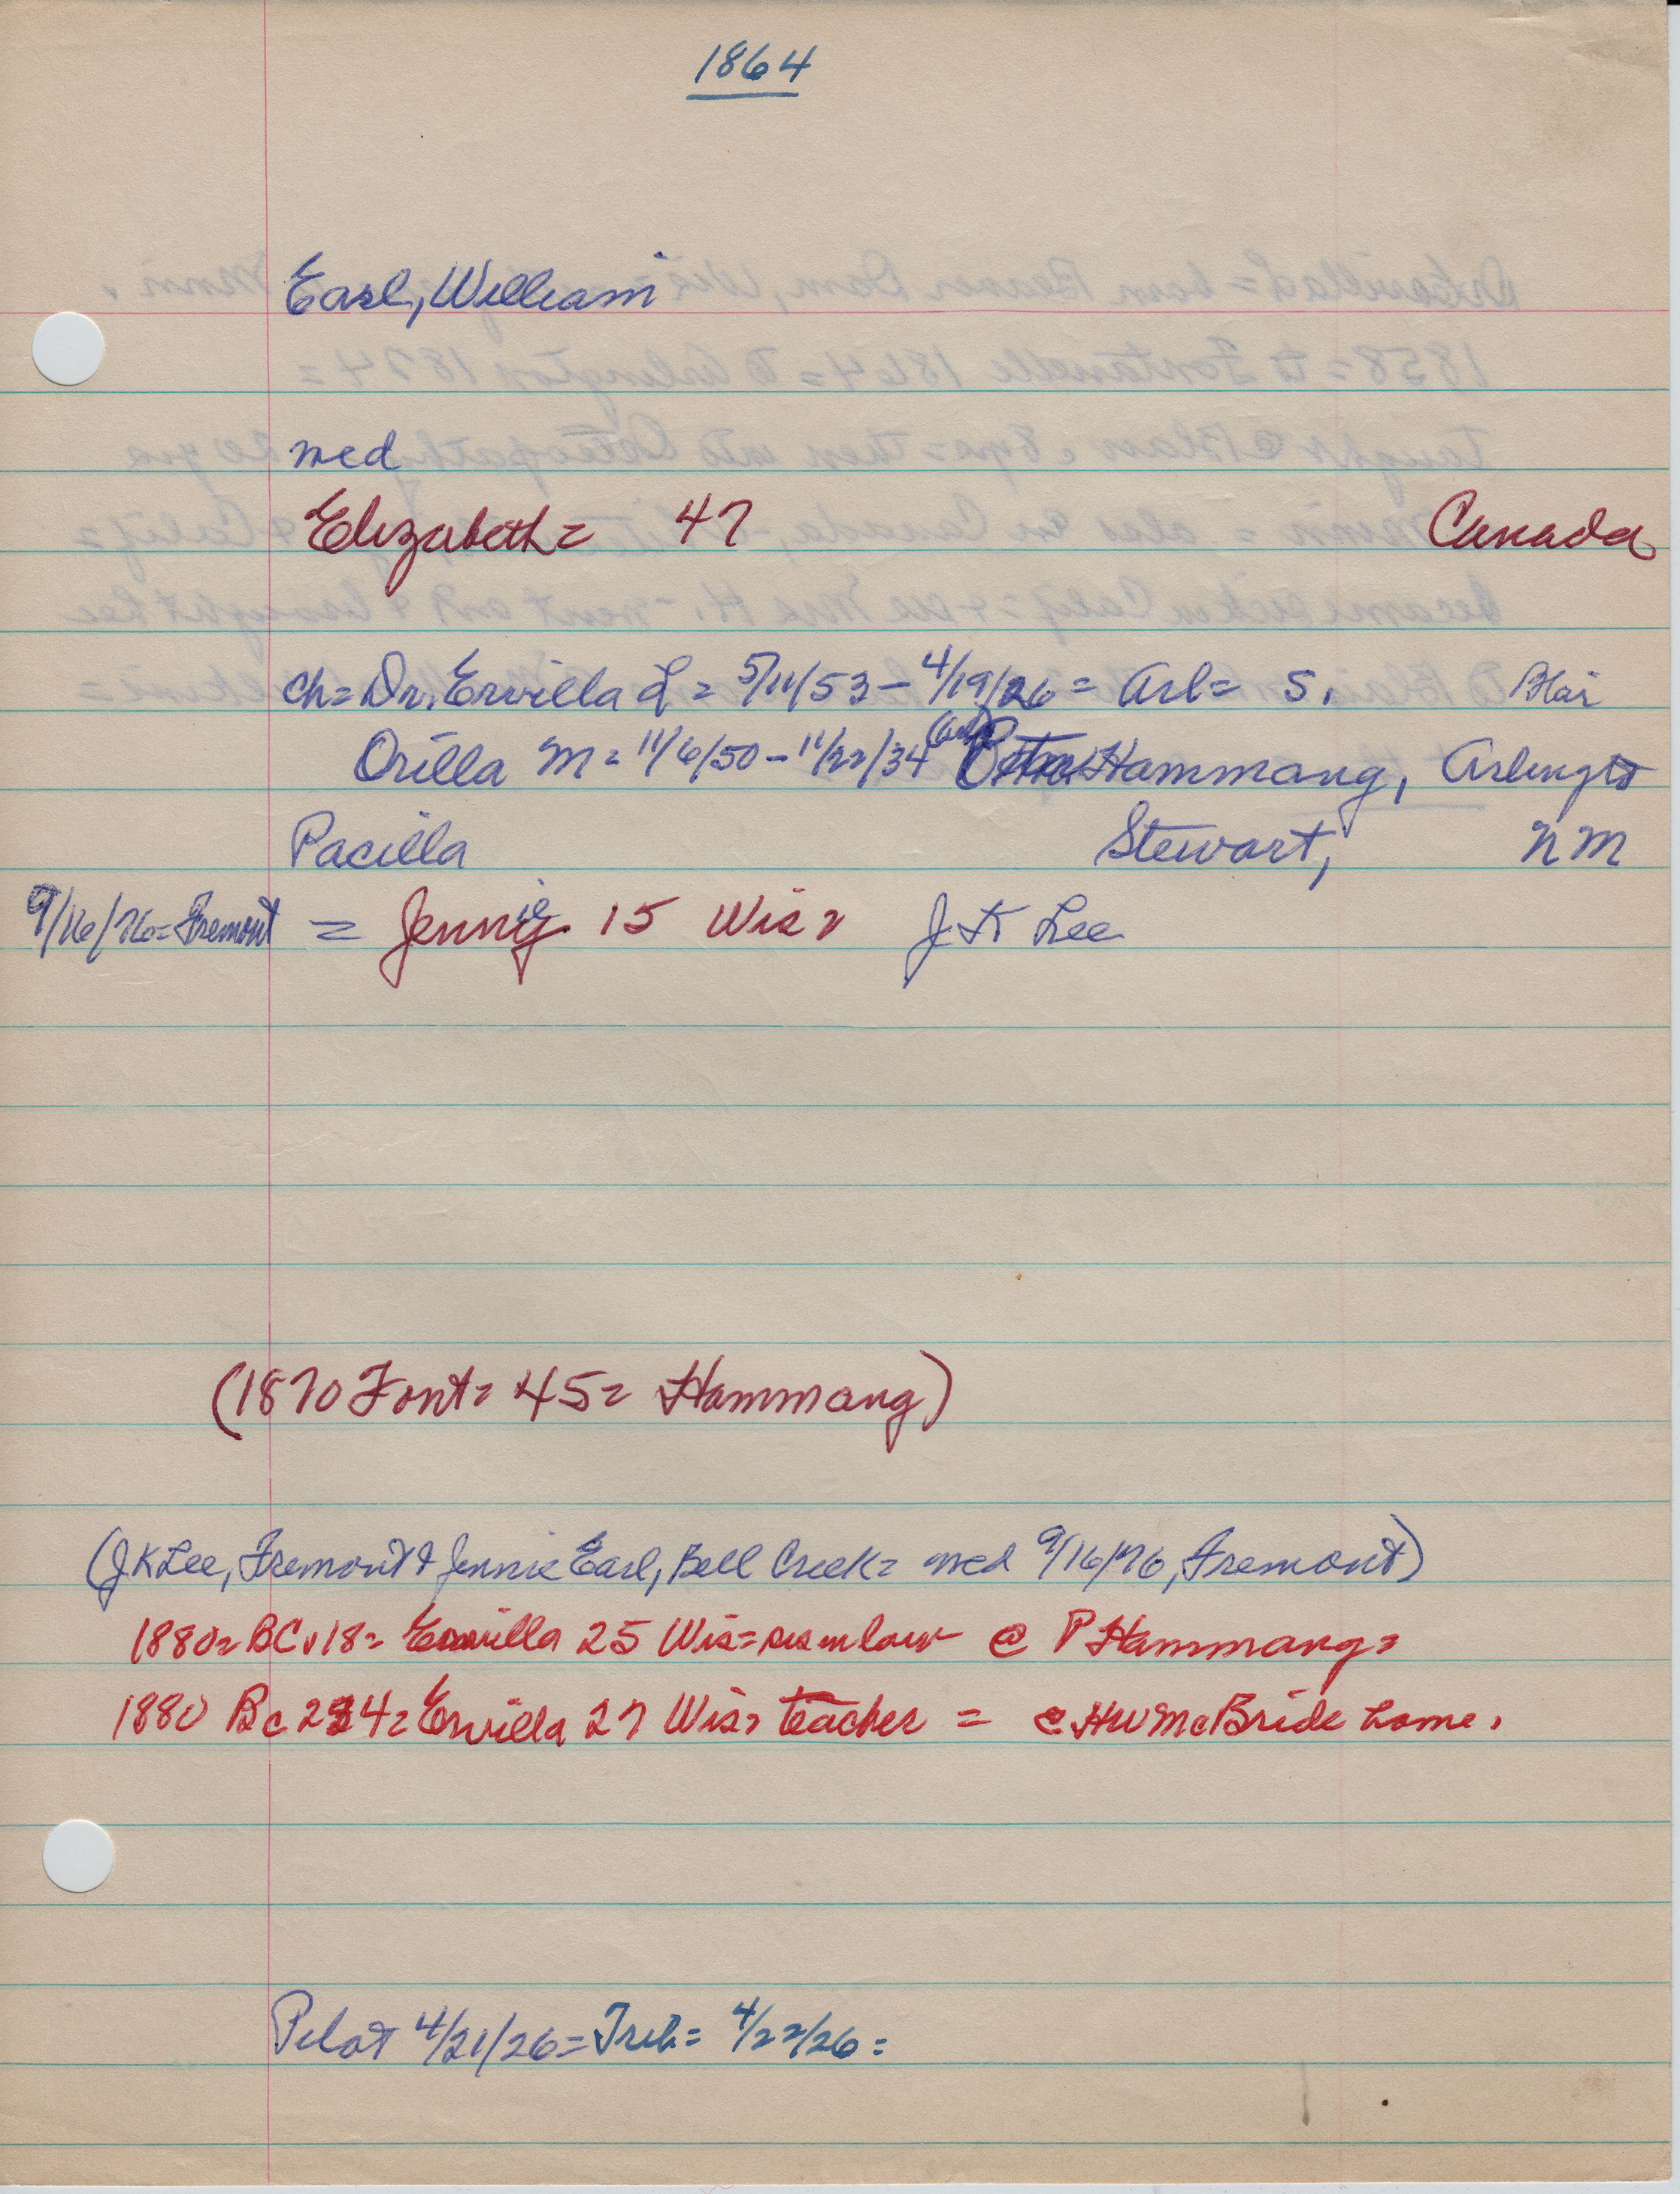 1864
Earl, William
med
Elizabeth = 47 Canada
ch = Dr. Ervilla L = 5/11/53 - 4/19/26 = Arl = S. Blair
Orilla M = 11/6/50 - 11/22/34 (Arl) Hammang, Arlington
Pacilla Stewart, NM
9/16/76 = Fremont = Jennie 15 Wis = J K Lee
(1870 Font = 45 = Hammang)
(J K Lee, Fremont & Jennie Earl, Bell Creek = med 9/16/76, Fremont)
1880 = BC, 18 = Ervilla 25 Wis = sis in law @ P Hammang =
1880 Bc 234 = Ervilla 27 Wis = teacher = @ HW McBride home.
Pilot 4/21/26 = Trib. = 4/22/26 =